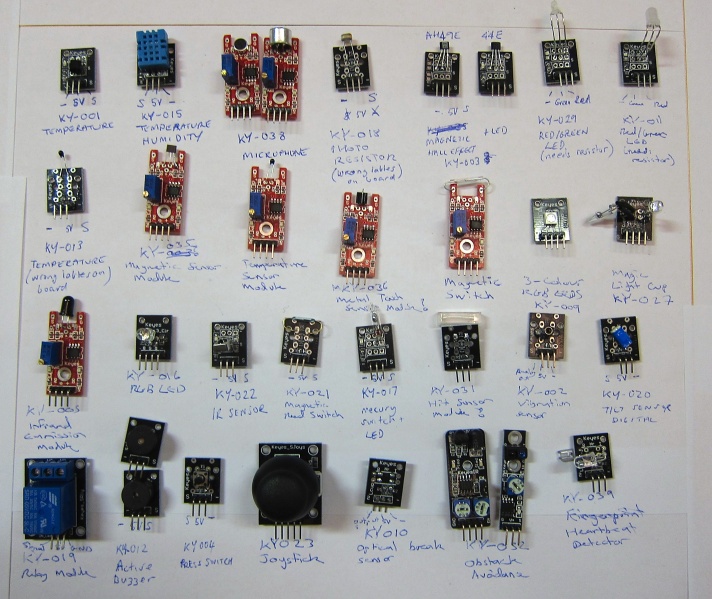 AH49E
44E
- 5V S
KY-001
TEMPERATURE
S 5V -
KY-015
TEMPERATURE
HUMIDITY
KY-038
MICROPHONE
- S
5V
KY-018
PHOTO
RESISTOR
(wrong lables
on board
- 5V S
MAGNETIC
HALL EFFECT
KY-003
+LED
- Green Red
KY-029
RED/GREEN
LED
(needs resistor)
KY-011
Red/Green
LED
(needs
resistor)
- 5V S
KY-013
TEMPERATURE
(wrong lables on
board
KY-035
Magnetic Sensor
Module
Temperature
Sensor
Module
KY-036
Metal Touch
Sensor Module
Magnetic
Switch
3-Colour
LEDS
KY-009
Magic
Light Cup
KY-027
KY-005
Infrared
Emmission
Module
KY-016
RGB LED
- 5V S
KY-022
IR SENSOR
- 5V S
KY-021
Magnetic
Reed Switch
- 5V S
KY-017
Mecury
Switch +
LED
KY-031
Hit Sensor
Module
KY-002
Vibration
Sensor
S 5V -
KY-020
TILT SENSOR
DIGITAL
Signal
KY-019
Relay Module
- 5V S
KY-012
Active
Buzzer
S 5V -
KY004
PRESS SWITCH
Keyes_SJoys
KY023
Joystick
Keyes
KY010
Optical break
sensor
KY-032
Obstacle
Avoidance
Keyes
KY-039
Fingerprint
Heartbeat
Detector